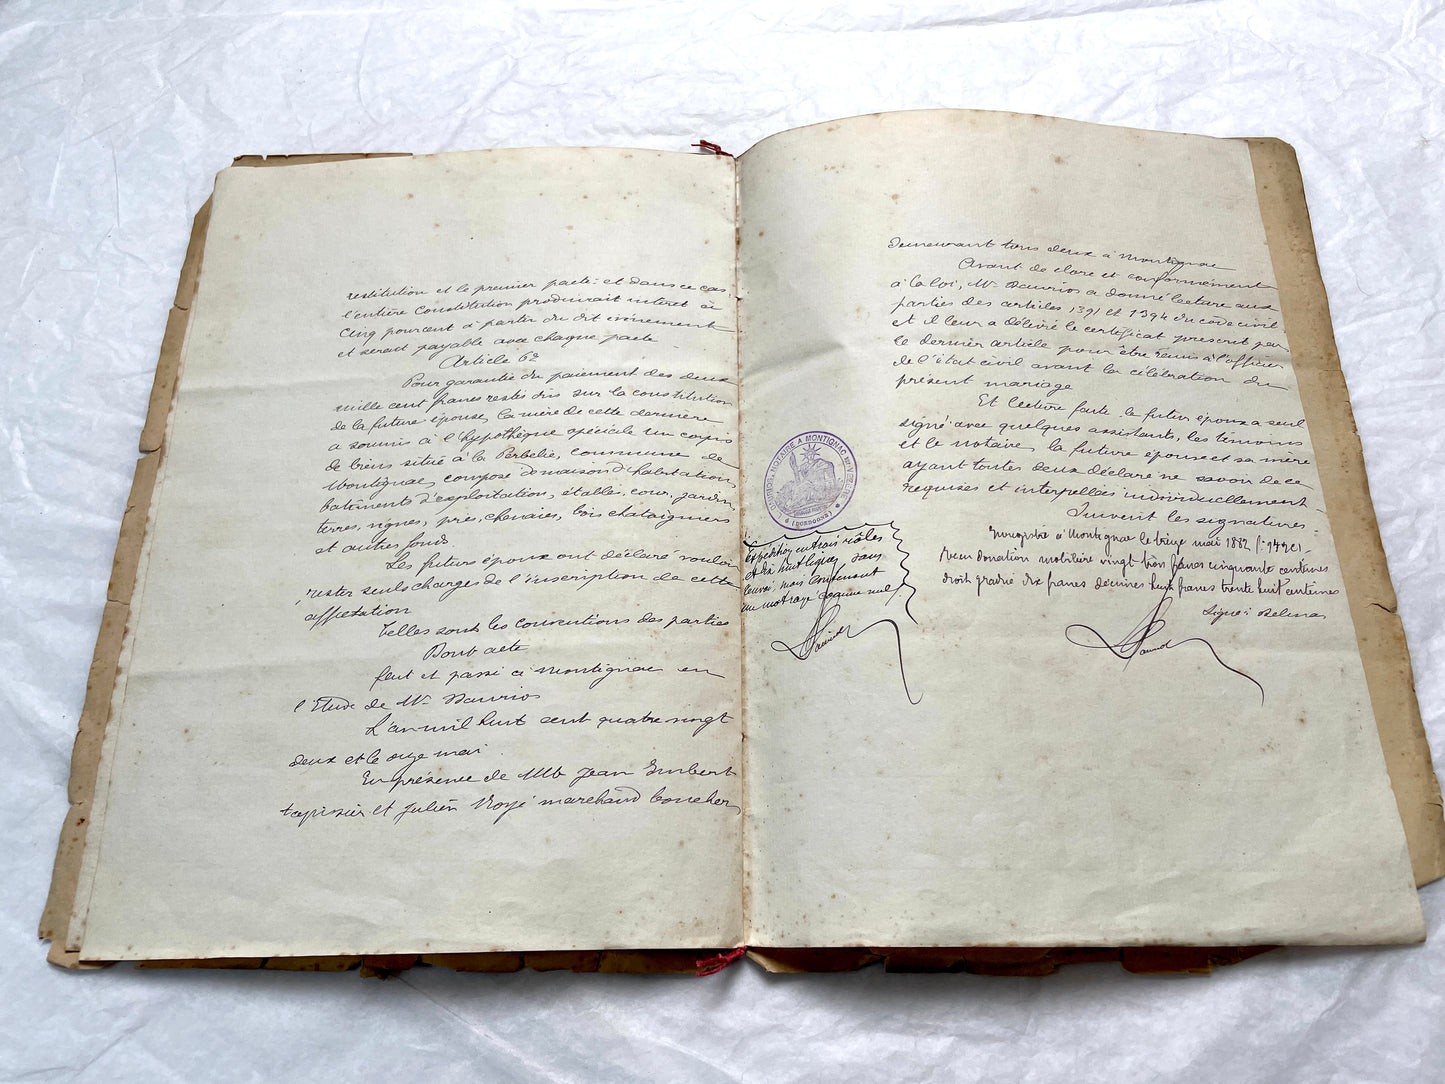 restitution et le premier pacte: et dans ce cas
l'entière constitution produirait intérêt à
cinq pour cent à partir du dit événement
et serait payable avec chaque pacte
Article 6e
Pour garantie du paiement des deux
mille cent francs restés dûs sur la constitution
de la future épouse, la mère de cette dernière
a soumis à l'hypothèque spéciale un corps
de biens situé à la Perbelie, commune de
Montignac, composé de maison d'habitation,
bâtiments d'exploitation, étables, cour, jardin,
terres, vignes, près, chenaies, bois chataigniers
et autres fonds.
Les futurs époux ont déclaré vouloir
rester seuls chargés de l'inscription de cette
affectation
Telles sont les conventions des parties
Dont acte
fait et passé à Montignac en
l'Etude de Me Daurios
L'an mil huit cent quatre vingt
deux et le onze mai
En présence de MM Jean Imbert
tapissier et Julien Royé marchand boucher
demeurant tous deux à Montignac
Avant de clore et conformément
à la loi, Me Daurios a donné lecture aux
parties des articles 1391 et 1394 du code civil
et il leur a délivré le certificat prescrit par
le dernier article pour être remis à l'officier
de l'état civil avant la célébration du
présent mariage
Et lecture faite le futur époux a seul
signé avec quelques assistants, les témoins
et le notaire, la future épouse et sa mère
ayant toutes deux déclaré ne savoir de ce
requises et interpellées individuellement.
Suivent les signatures:
Enregistré à Montignac le treize mai 1882 f:
Reçu donation mobilière vingt trois francs cinquante centimes
droit gradué dix francs décimes huit francs trente huit centimes
Signé: Delmas
NOTAIRE A MONTIGNAC
(DORDOGNE)
Expédition en trois rôles
et dix huit lignes sans
renvoi mais contenant
un mot rayé comme nul.